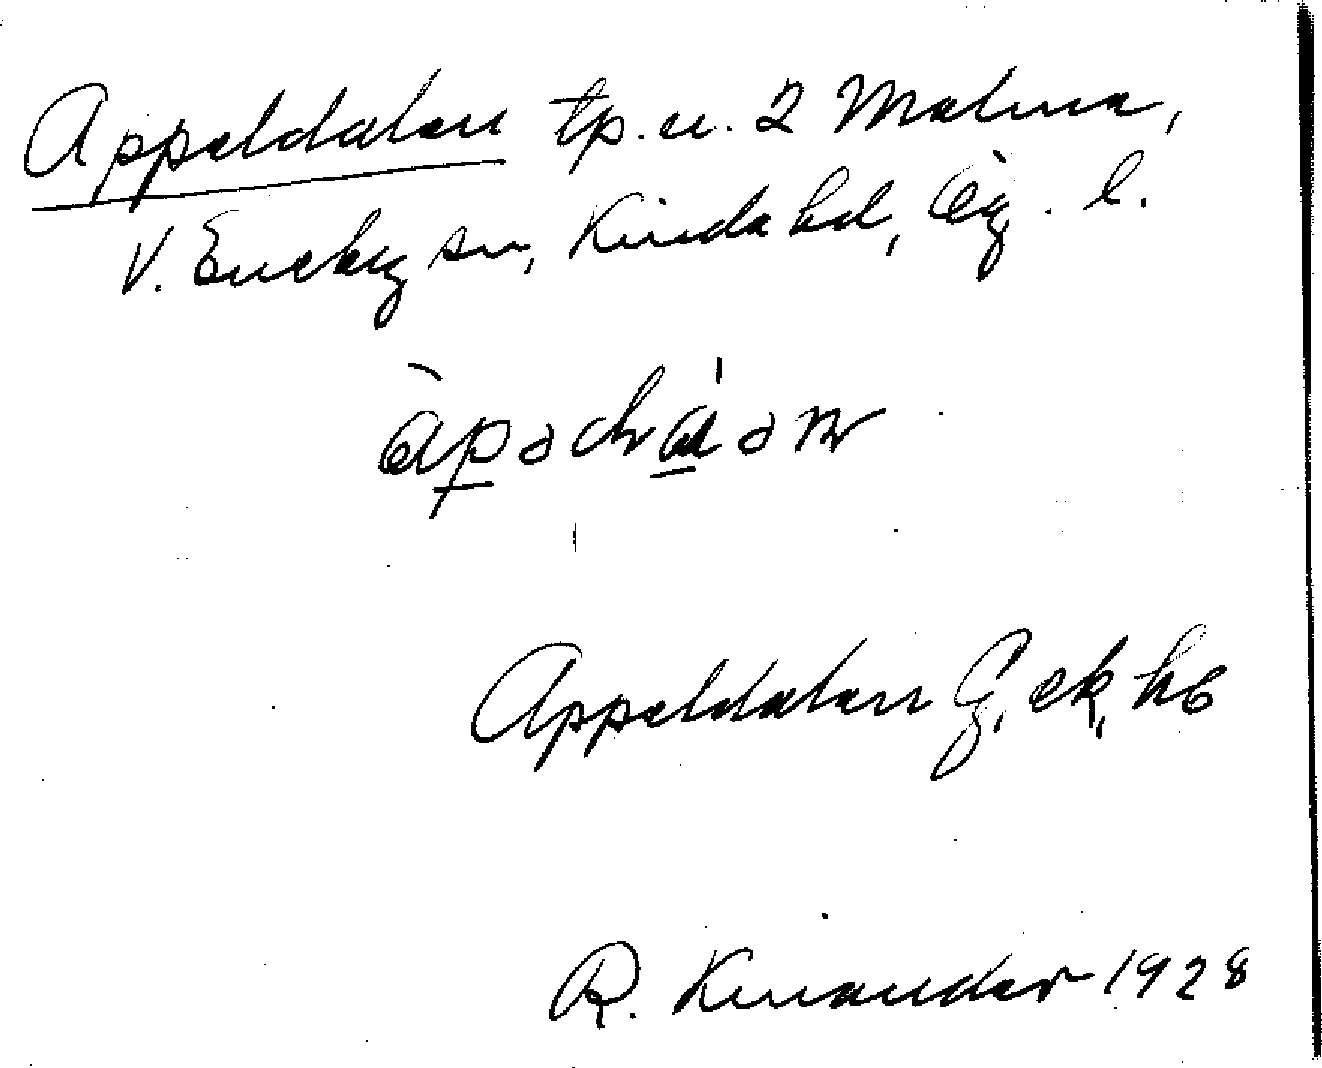 Appeldalen tp. u. 2 Malma,
V. Eneby sn, Kinda hd, Ög. l.
Appeldalen G. ek, hb
R. Kinander 1928